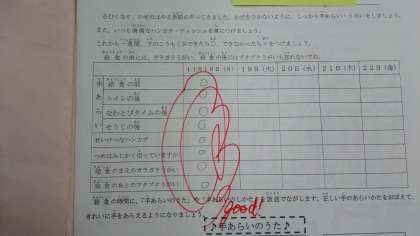 さむくなり、かぜのはやる季節のやってきました。かぜをひかないように、しっかり手あらい・うがいをしましょう。
また、いつも清潔なハンカチ・ティッシュを身につけましょう。
これから一週間、下のこうもくができたら○、できなかったら×をつけましょう。
給食の前には、ガラガラうがい、給食の後にはブクブクうがいも忘れないでね。
11月18日(月) 19日(火) 20日(水) 21日(木) 22日(金)
手あらい
給食の前 ○
トイレの後 ○
なわとびタイムの後 ○
そうじの後 ○
せいけつなハンカチ ○
つめはみじかく切っていますか ○
給食のまえのガラガラうがい ○
給食のあとのブクブクうがい ○
給食の時間に、「手あらいのうた」や「手あらいのしかた」を放送でながします。正しい手のあらいかたをおぼえて、
きれいに手をあらえるようになりましょう。
good!
♪手あらいのうた♪